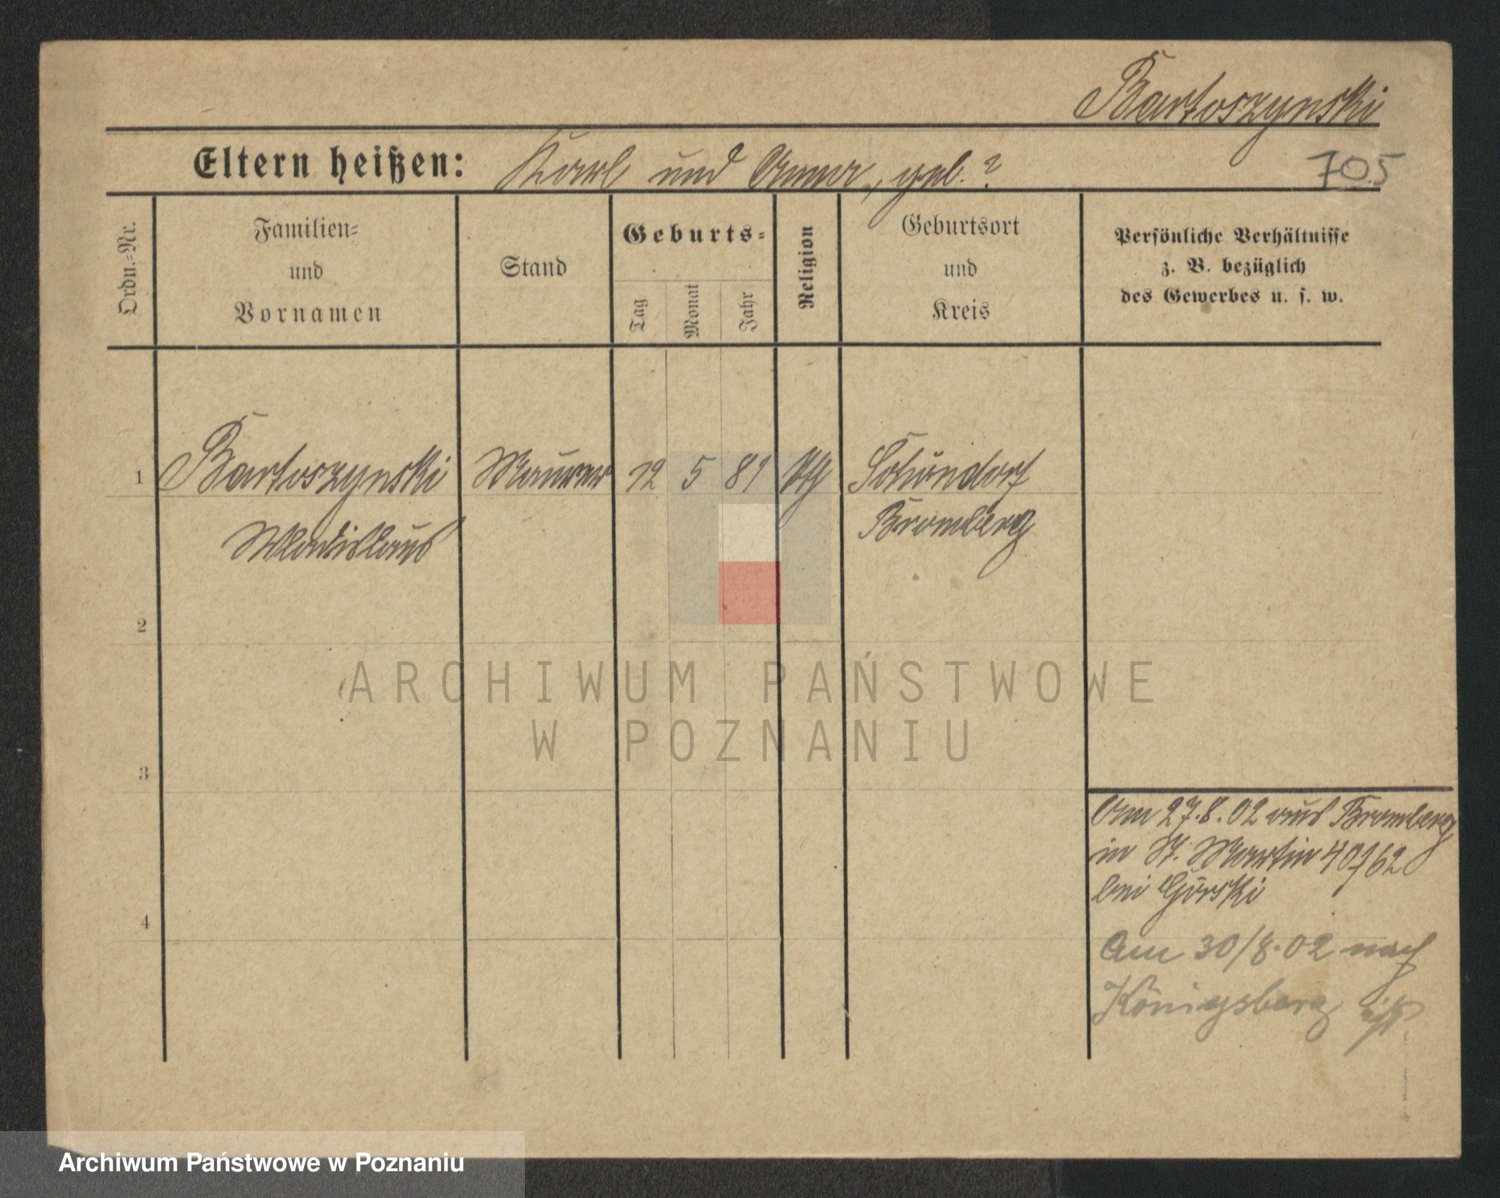 Bartoszynski
Eltern heißen: Karl und Anna, geb. ?
705
Ordn.-Nr.
Familien-
und
Vornamen
Stand
Geburts-
Tag
Monat
Jahr
Religion
Geburtsort
und
Kreis
Persönliche Verhältnisse
z. B. bezüglich
des Gewerbes u. s. w.
1 Bartoszynski Maurer 12 5 81 Schöndorf
Wladislaus Bromberg
2
3
4
Am 27.8.02 aus Bromberg
in St. Martin 40/62
bei Górski
Am 30/8.02 nach
Königsberg
ARCHIWUM PAŃSTWOWE
W POZNANIU
Archiwum Państwowe w Poznaniu